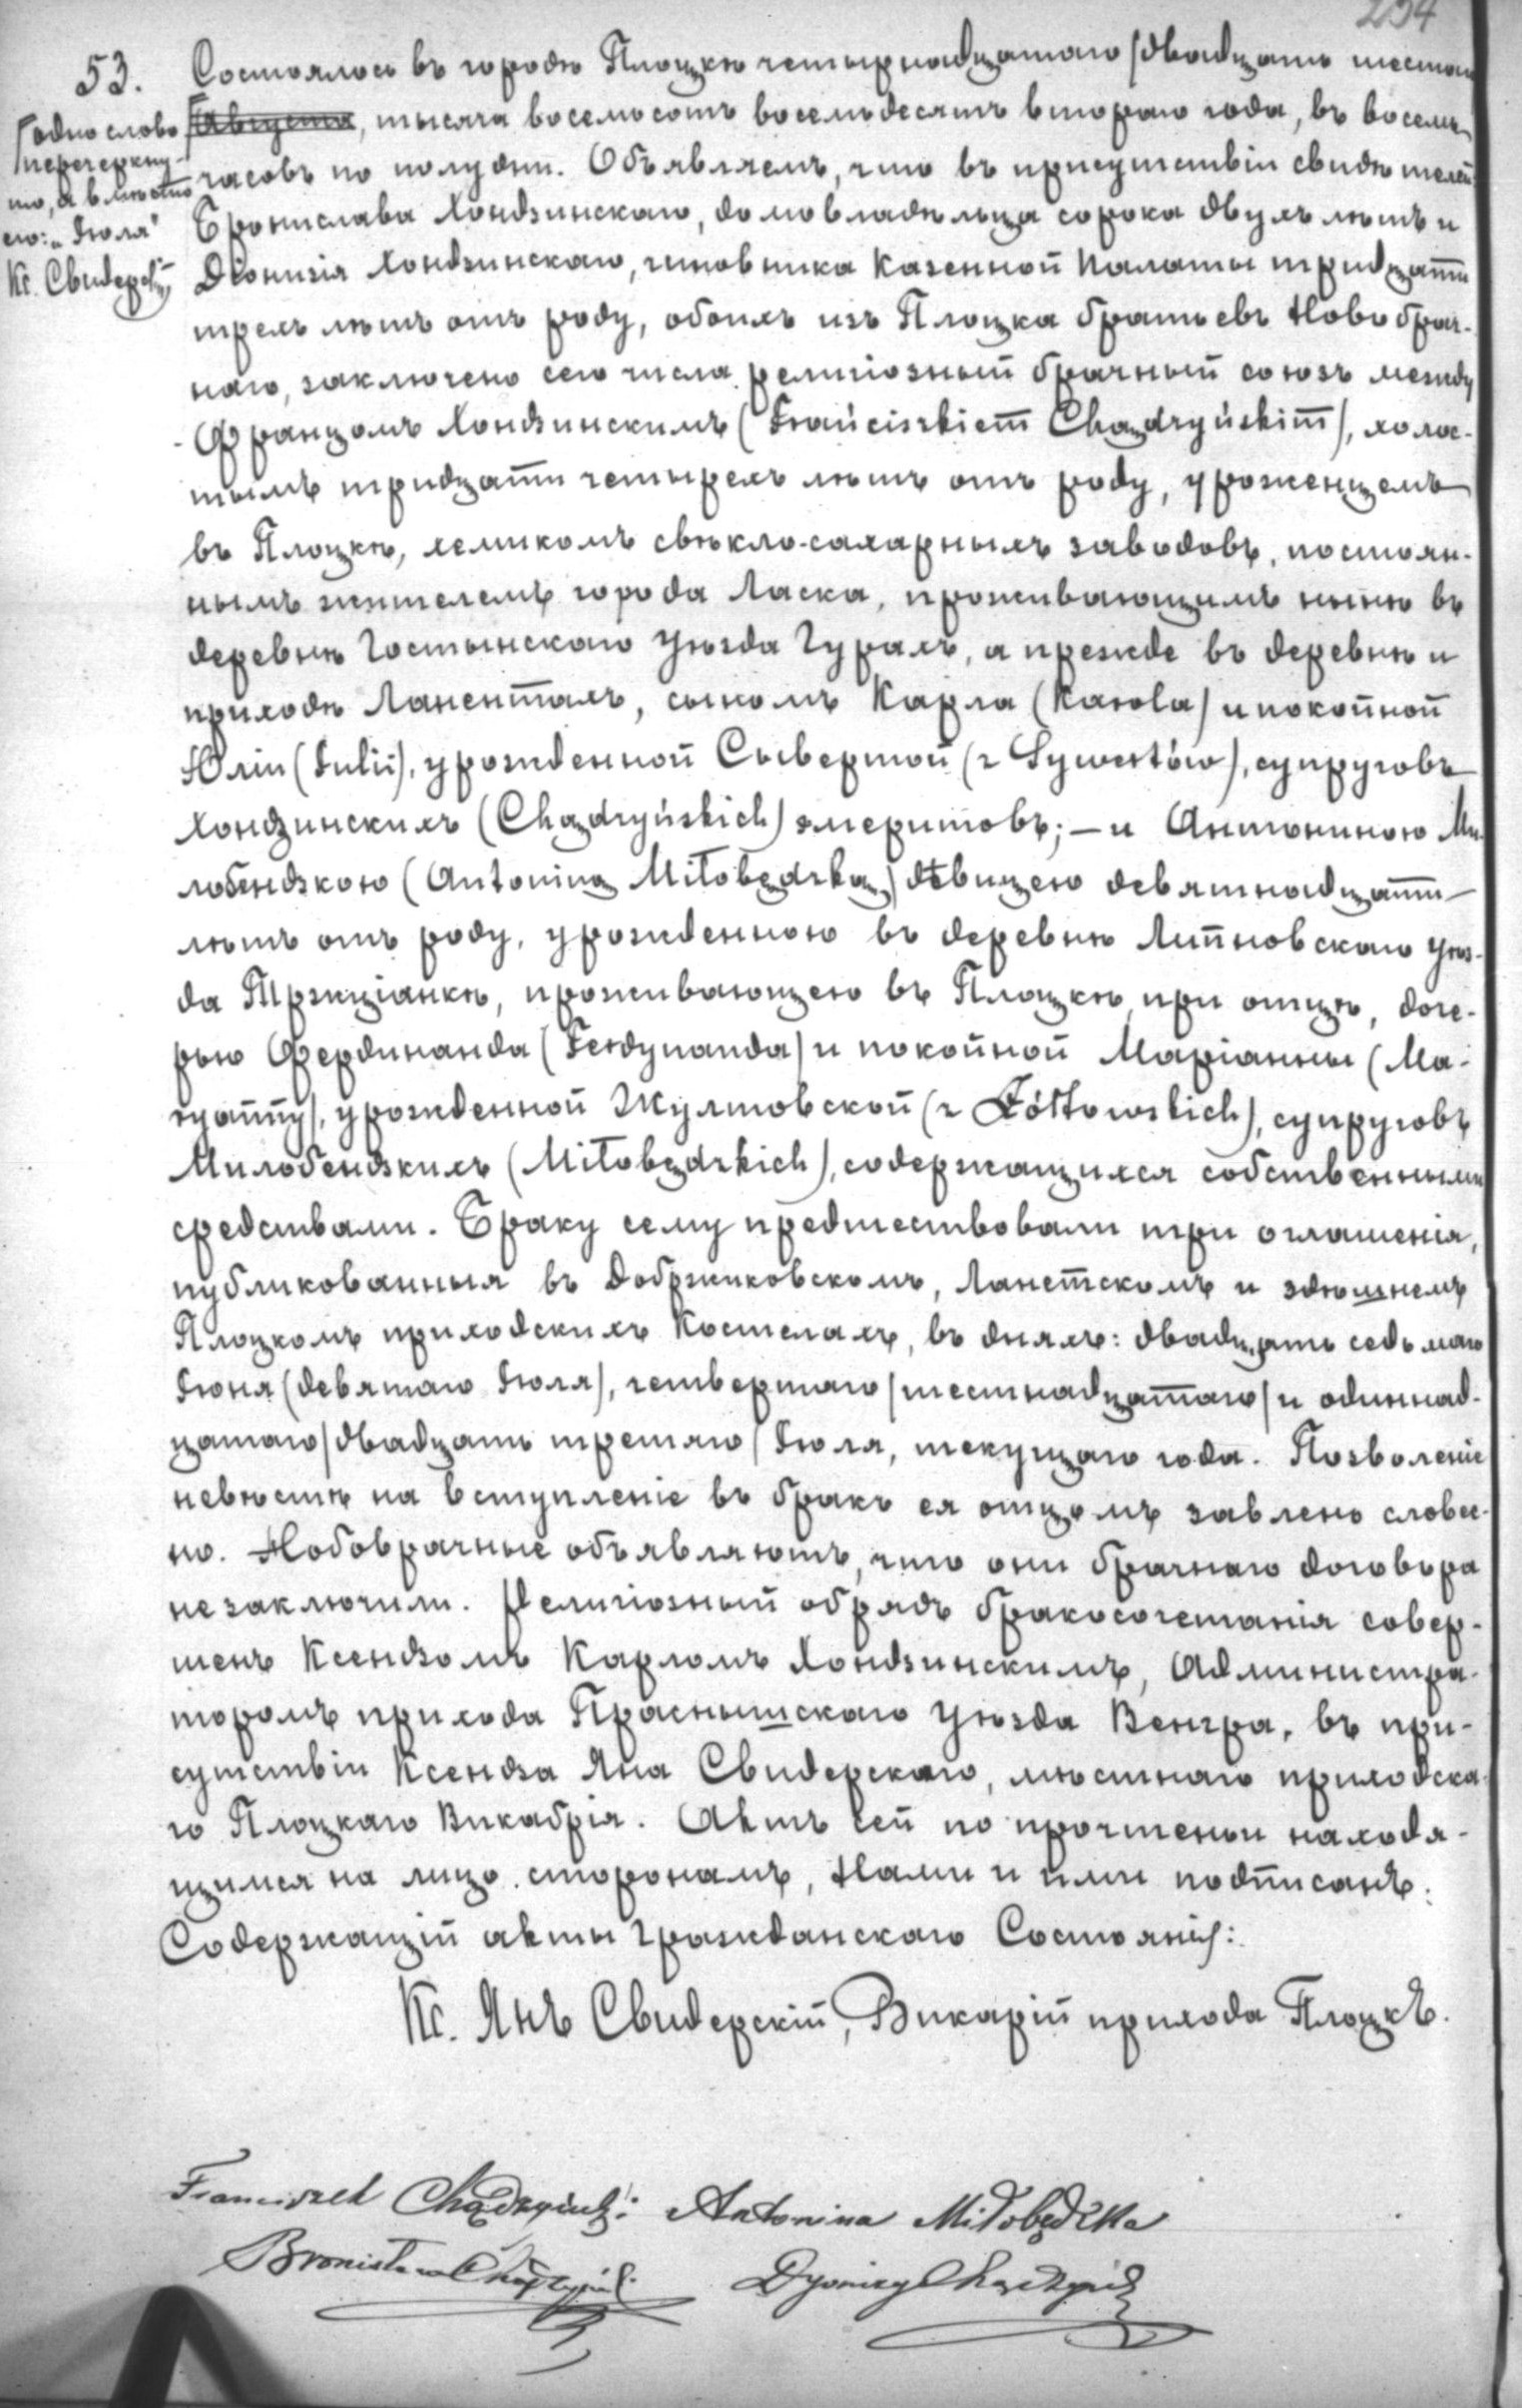 254
53.
Состоялось въ городѣ Плоцкѣ четырнадцатаго /двадцать шестаго
Августа, тысяча восемьсотъ восемьдесятъ втораго года, въ восемь
часовъ по полудни. Объявляемъ, что въ присутствіи свидѣтелей
Бронислава Хондзинскаго, домовладѣльца сорока двухъ лѣтъ и
Діонизія Хондзинскаго, чиновника Казенной Палаты тридцати
трехъ лѣтъ отъ роду, обоихъ изъ Плоцка братьевъ Новобрач-
наго, заключено сего числа религіозный брачный союзъ между
Францомъ Хондзинскимъ (Franciszkiem Chądzyńskim), холос-
тымъ тридцати четырехъ лѣтъ отъ роду, уроженцемъ
въ Плоцкѣ, химикомъ свѣкло-сахарныхъ заводовъ, постоян-
нымъ жителемъ города Ласка, проживающимъ нынѣ въ
деревнѣ Гостынскаго Уѣзда Гурахъ, а прежде въ деревнѣ и
приходѣ Ланентахъ, сыномъ Карла (Karola) и покойной
Юліи (Julii), урожденной Сывертой (z Sywertów), супруговъ
Хондзинскихъ (Chądzyńskich) эмеритовъ; — и Антониною Ми-
лобендзкою (Antoniną Miłobędzką) дѣвицею девятнадцати
лѣтъ отъ роду, урожденною въ деревнѣ Липновскаго Уѣз-
да Тржціанкѣ, проживающею въ Плоцкѣ при отцѣ, доче-
рью Фердинанда (Ferdynanda) и покойной Маріанны (Ma-
ryanny), урожденной Жултовской (z Żółtowskich), супруговъ
Милобендзкихъ (Miłobędzkich), содержащихся собственными
средствами. Браку сему предшествовали три оглашенія,
публикованныя въ Добржиковскомъ, Ланетскомъ и здѣшнемъ
Плоцкомъ приходскихъ Костелахъ, въ дняхъ: двадцать седьмаго
Іюня (девятаго Іюля), четвертаго /шестнадцатаго/ и одиннад-
цатаго /двадцать третяго/ Іюля, текущаго года. Позволеніе
невѣстѣ на вступленіе въ бракъ ея отцомъ завлено словес-
но. Нововрачные объявляютъ, что они брачнаго договора
не заключили. Религіозный обрядъ бракосочетанія совер-
шенъ Ксендзомъ Карломъ Хондзинскимъ, Администра-
торомъ прихода Праснышскаго Уѣзда Венгра, въ при-
сутствіи Ксендза Яна Свидерскаго, мѣстнаго приходска-
го Плоцкаго Викабрія. Актъ сей по прочтеньи находя-
щимся на лицо сторонамъ, Нами и ими подписанъ.
Содержащій акты Гражданскаго Состоянія:
Кс. Янъ Свидерскій, Викарій прихода Плоцкъ.
Franciszek Chądzyński Antonina Miłobędzka
Bronisław Chądzyński Dyonizy Chądzyński
Одно слово
перечеркну-
то, а вмѣсто
его: „Іюля"
Кс. Свидерскій